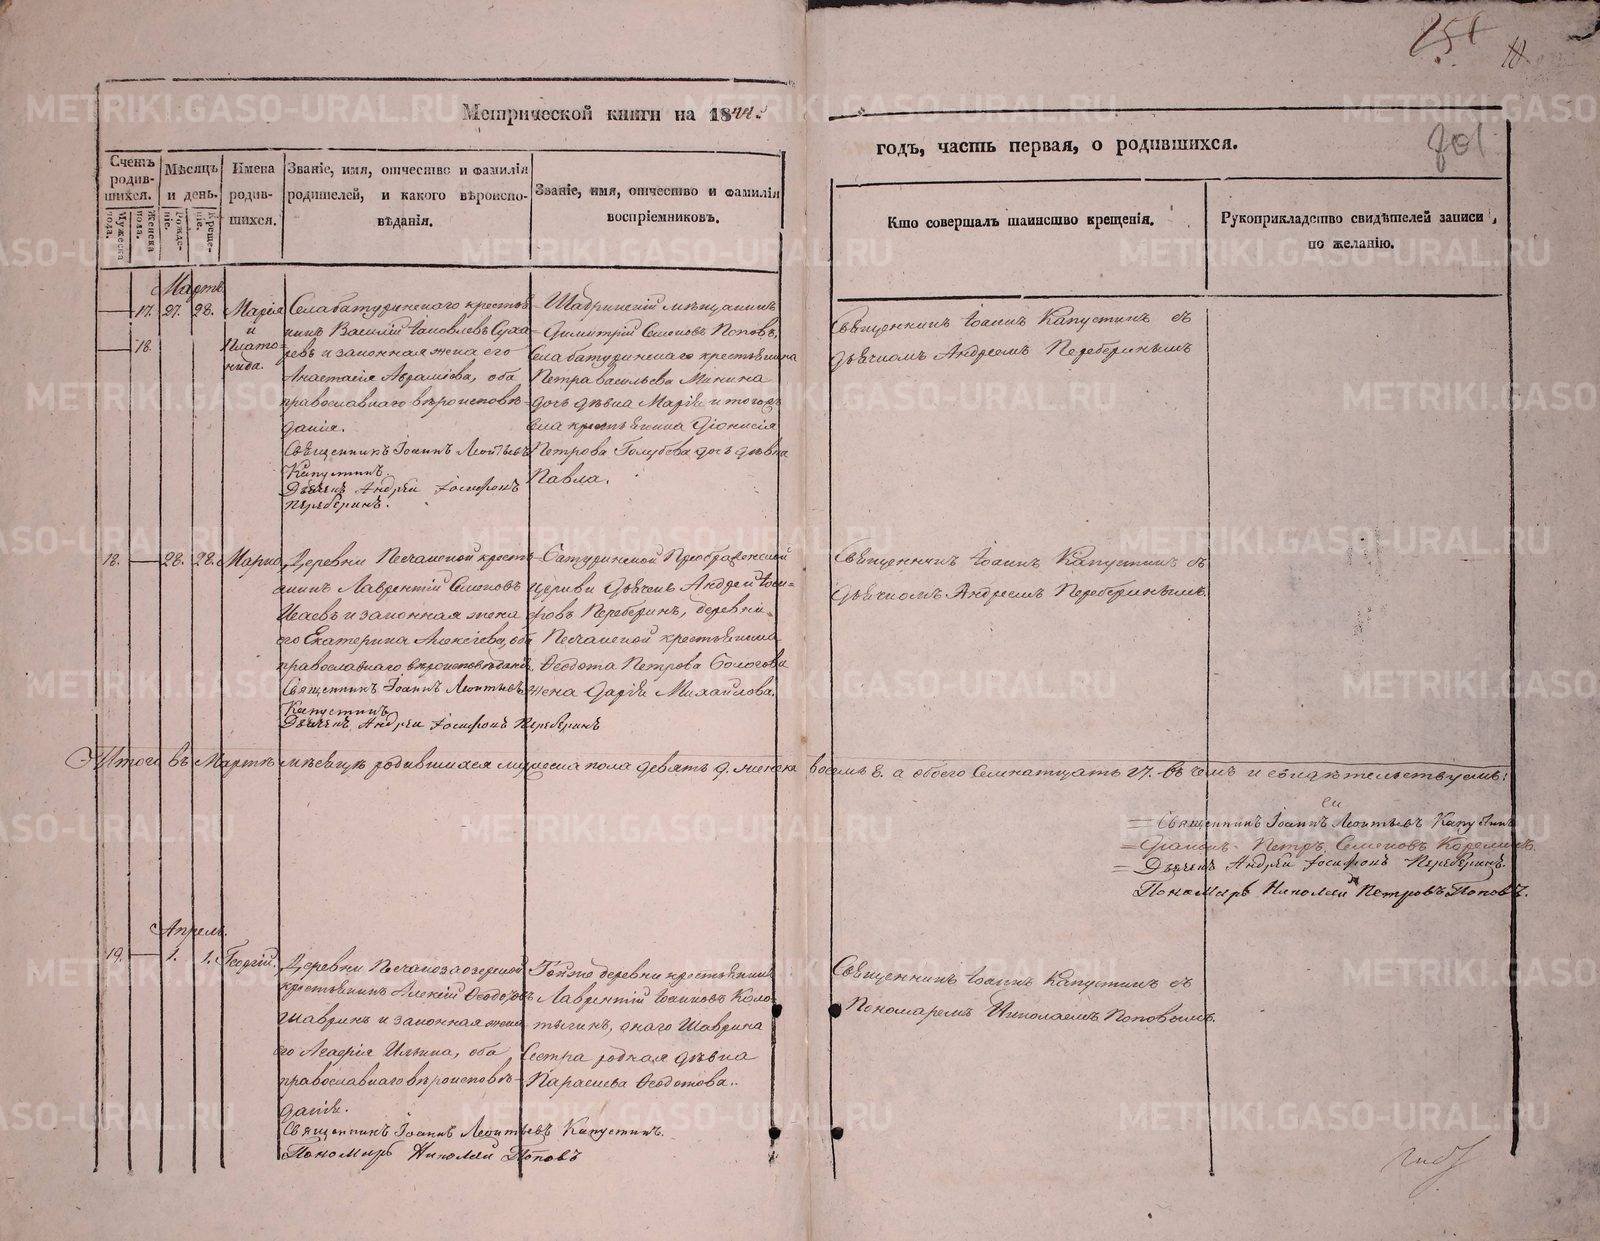 251
801
Метрической книги на 1844.
годъ, часть первая, о родившихся.
Счетъ родив- шихся.
Мужеска пола.
Женска пола.
Мѣсяцъ и день.
Рожде- нія.
Креще- нія.
Имена родив- шихся.
Званіе, имя, отчество и фамилія
родителей, и какого вѣроиспо-
вѣданія.
Званіе, имя, отчество и фамилія
воспріемниковъ.
Кто совершалъ таинство крещенія.
Рукоприкладство свидѣтелей записи
по желанію.
Мартъ
17. 27. 28. Марія
и
18. Плато-
нида.
Села батуринскаго крестья-
нинъ Василій Іаковлевъ Суха-
ревъ и законная жена его
Анастасія Аврамова, оба
православнаго вѣроисповѣ-
данія.
Священникъ Іоаннъ Леонтьевъ
Капустинъ.
Дьячекъ Андрей Іосифовъ
Переберинъ.
Шадринскій мѣщанинъ
Димитрій Семеновъ Поповъ,
села батуринскаго крестьянина
Петра васильева Минина
дочь дѣвка Марія и тогожъ
села крестьянина Діонисія
Петрова Голубева дочь дѣвка
Павла.
Священникъ Іоаннъ Капустинъ съ
дьячкомъ Андреемъ Переберинымъ
18. 28. 28. Марко,
Деревни Песчаной кресть-
янинъ Лаврентій Семеновъ
Исаевъ и законная жена
его Екатерина Алексѣева, оба
православнаго вѣроисповѣданія
Священникъ Іоаннъ Леонтьевъ
Капустинъ
Дьячекъ Андрей Іосифовъ Переберинъ
батуринской Преображенской
церкви Дьячекъ Андрей Іоси-
фовъ Переберинъ, деревни
Песчаной крестьянина
Ѳеодота Петрова
жена Дарія Михайлова.
Священникъ Іоаннъ Капустинъ съ
Дьячкомъ Андреемъ Переберинымъ.
Итого въ Мартѣ мѣсяцѣ родившихся мужеска пола девять 9. женска восемь 8. а обоего Семнатцать 17. въ чемъ и свидѣтельствуемъ:
Священникъ Іоаннъ Леонтьевъ Капустинъ
Діаконъ Петръ Семеновъ
Дьячекъ Андрей Іосифовъ Переберинъ.
Пономарь Николай Петровъ Поповъ.
Апрель.
19. 1. 1. Георгій.
Деревни Песчанозаозерской
крестьянинъ Алексій Ѳеодотовъ
Шавринъ и законная жена
его Агафія Ильина, оба
православнаго вѣроисповѣ-
данія.
Священникъ Іоаннъ Леонтьевъ Капустинъ.
Пономарь Николай Поповъ
Тойже деревни крестьянинъ
Лаврентій Іоанновъ Коло-
тыгинъ, онаго Шаврина
Сестра родная дѣвка
Параскева Ѳеодотова.
Священникъ Іоаннъ Капустинъ съ
Пономаремъ Николаемъ Поповымъ.
METRIKI.GASO-URAL.RU